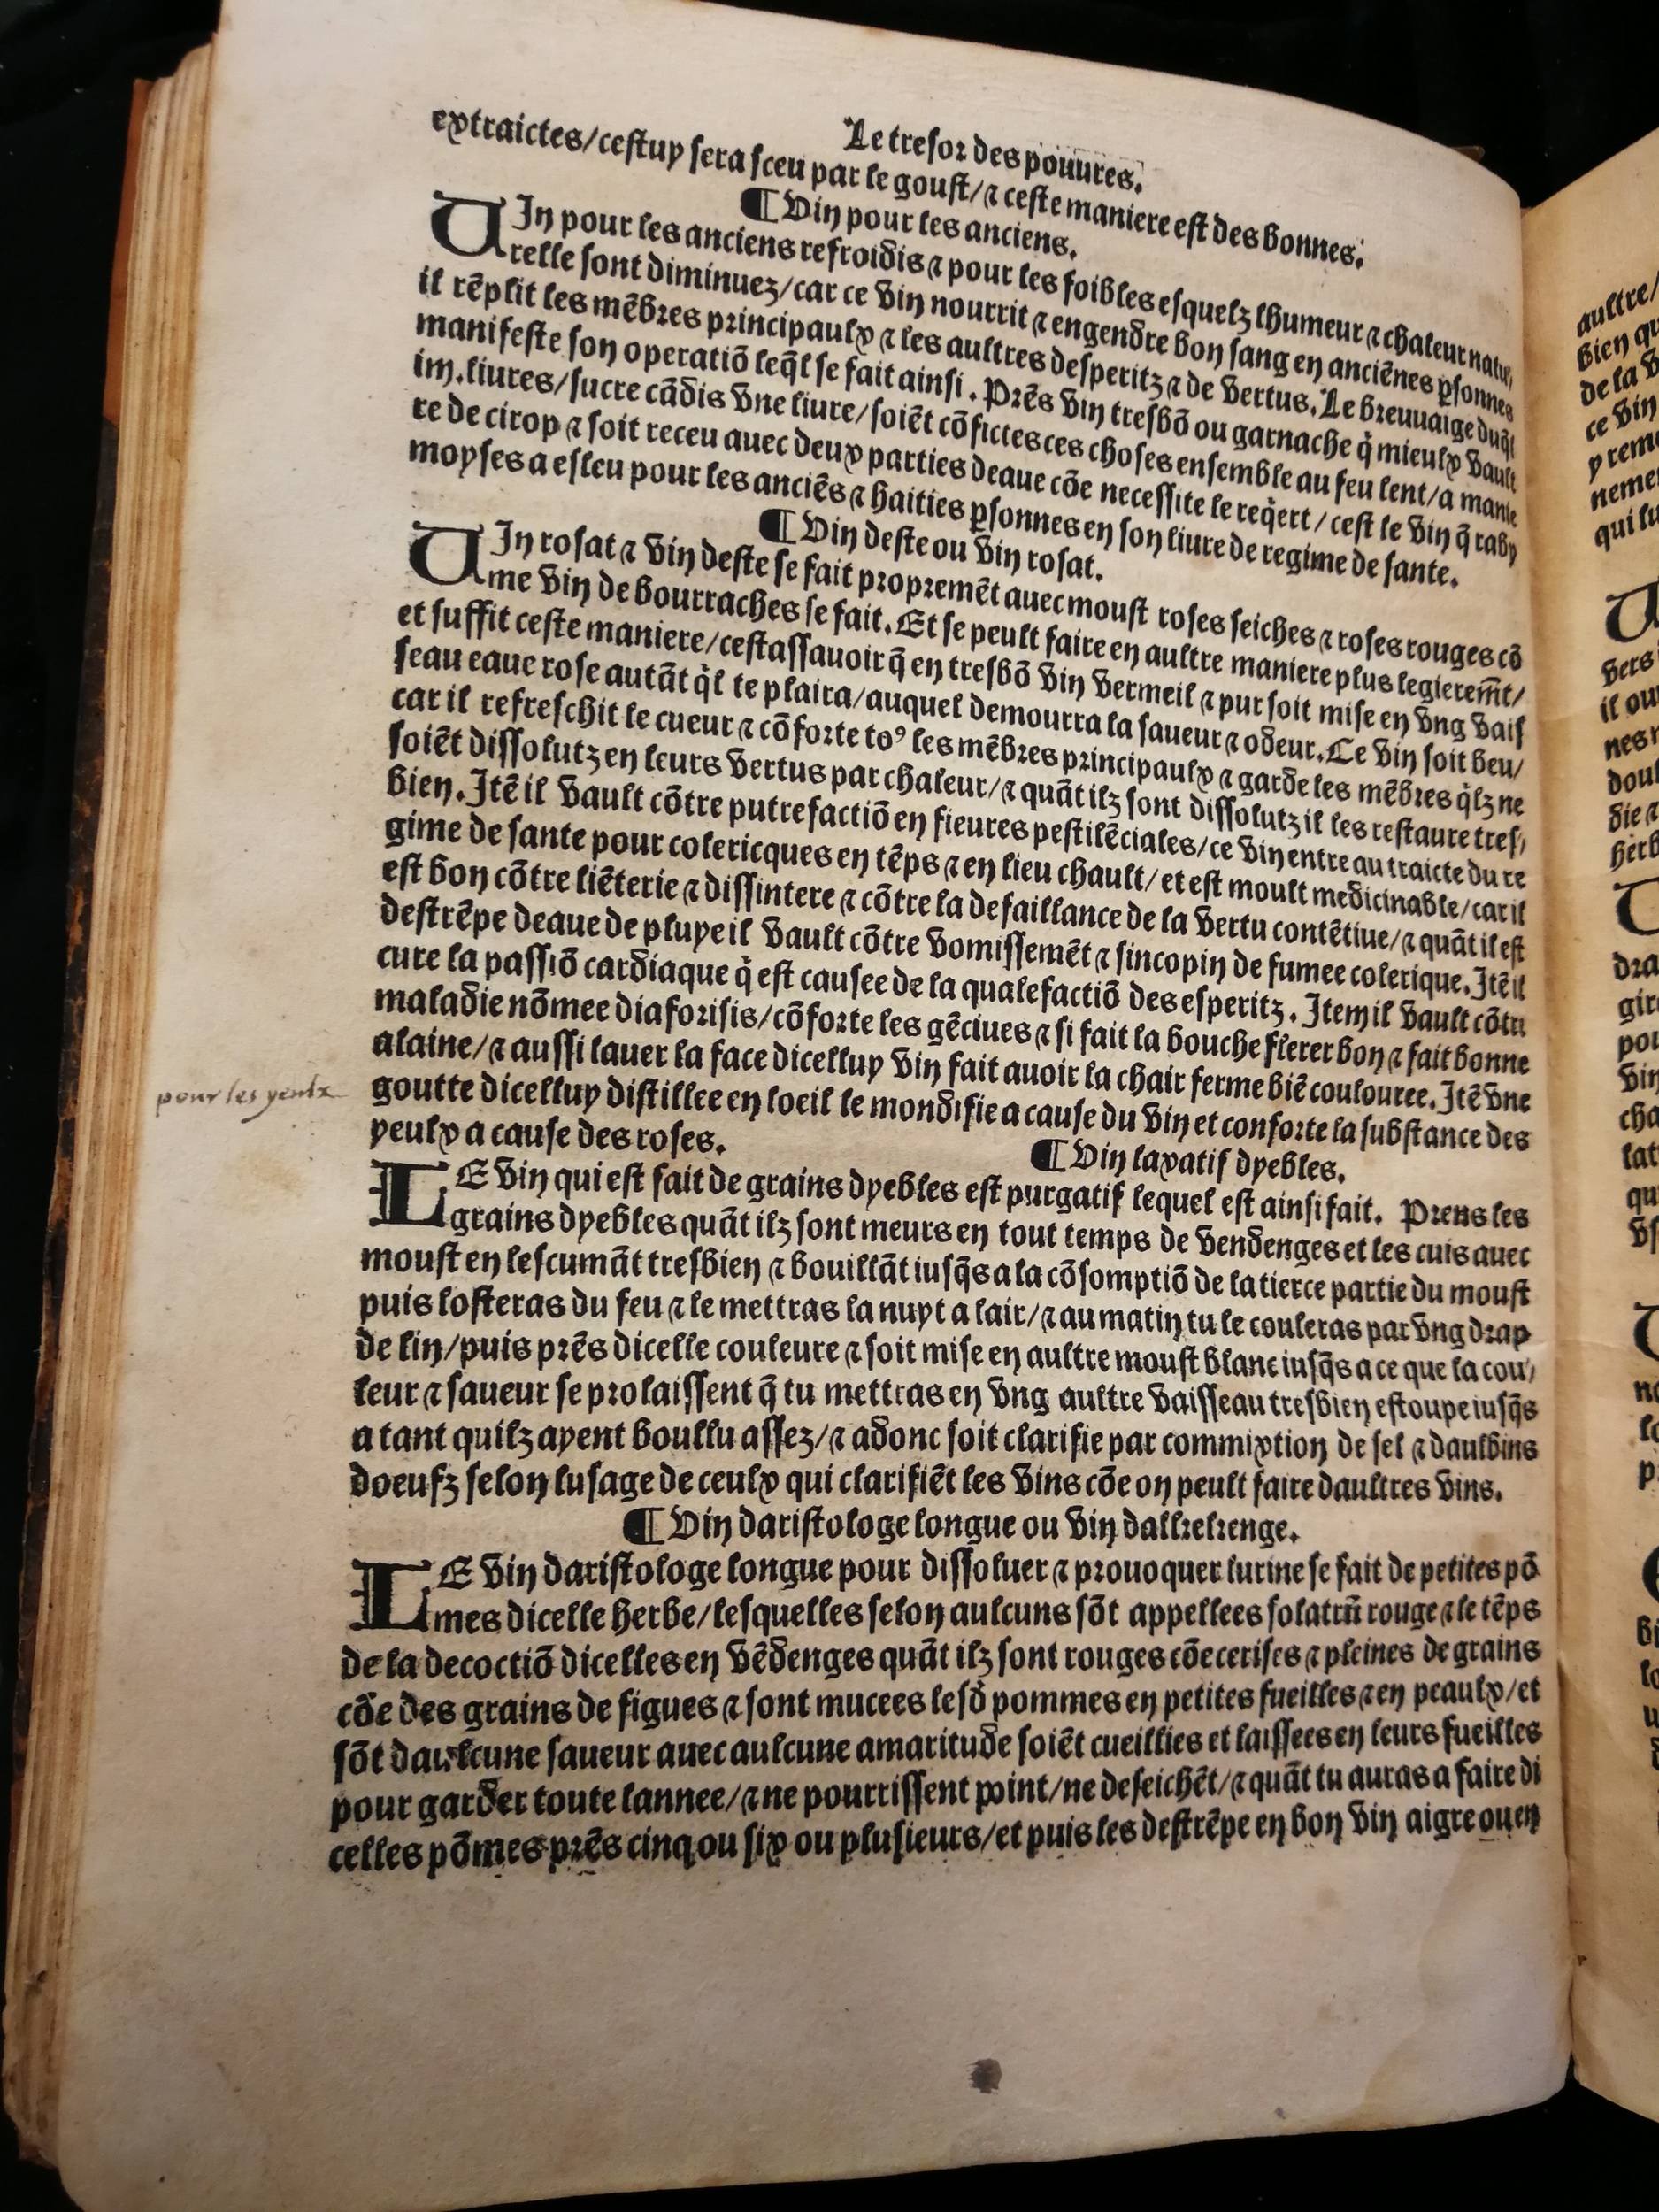 Le tresor des pouures.
extraictes/cestuy sera sceu par le goust/⁊ ceste maniere est des bonnes.
¶ Vin pour les anciens.
UIn pour les anciens refroidis ⁊ pour les foibles esquelz lhumeur ⁊ chaleur natu/
relle sont diminuez/car ce vin nourrit ⁊ engendre bon sang en anciẽnes ꝑsonnes
il rẽplit les mẽbres principaulx ⁊ les aultres desperitz ⁊ de vertus. Le breuuaige duq̃l
manifeste son operatiõ leq̃l se fait ainsi. Prẽs vin tresbõ ou garnache q̇ mieulx vault
iiij. liures/sucre cãdis vne liure/soiẽt cõfictes ces choses ensemble au feu lent/a manie
re de cirop ⁊ soit receu auec deux parties deaue cõe necessite le req̇ert/cest le vin q̃ raby
moyses a esleu pour les anciẽs ⁊ haities ꝑsonnes en son liure de regime de sante.
¶ Vin deste ou vin rosat.
UIn rosat ⁊ vin deste se fait propremẽt auec moust roses seiches ⁊ roses rouges cõ
me vin de bourraches se fait. Et se peult faire en aultre maniere plus legierem̃t/
et suffit ceste maniere/cestassauoir q̃ en tresbõ vin vermeil ⁊ pur soit mise en vng vais
seau eaue rose autãt q̇l te plaira/auquel demourra la saueur ⁊ odeur. Ce vin soit beu/
car il refreschit le cueur ⁊ cõforte toꝰ les mẽbres principaulx ⁊ garde les mẽbres q̇lz ne
soiẽt dissolutz en leurs vertus par chaleur/⁊ quãt ilz sont dissolutz il les restaure tres/
bien. Itẽ il vault cõtre putrefactiõ en fieures pestilẽciales/ce vin entre au traicte du re
gime de sante pour colericques en tẽps ⁊ en lieu chault/et est moult medicinable/car il
est bon cõtre liẽterie ⁊ dissintere ⁊ cõtre la defaillance de la vertu contẽtiue/⁊ quãt il est
destrẽpe deaue de pluye il vault cõtre vomissemẽt ⁊ sincopin de fumee colerique. Itẽ il
cure la passiõ cardiaque q̇ est causee de la qualefactiõ des esperitz. Item il vault cõtre
maladie nõmee diaforisis/cõforte les gẽciues ⁊ si fait la bouche flerer bon ⁊ fait bonne
alaine/⁊ aussi lauer la face dicelluy vin fait auoir la chair ferme biẽ coulouree. Itẽ vne
goutte dicelluy distillee en loeil le mondifie a cause du vin et conforte la substance des
pour les yeulx
yeulx a cause des roses.
¶ Vin laxatif dyebles.
LE vin qui est fait de grains dyebles est purgatif lequel est ainsi fait. Prens les
grains dyebles quãt ilz sont meurs en tout temps de vendenges et les cuis auec
moust en lescumãt tresbien ⁊ bouillãt iusq̃s a la cõsomptiõ de la tierce partie du moust
puis losteras du feu ⁊ le mettras la nuyt a lair/⁊ au matin tu le couleras par vng drap
de lin/puis prẽs dicelle couleure ⁊ soit mise en aultre moust blanc iusq̃s a ce que la cou/
leur ⁊ saueur se prolaissent q̃ tu mettras en vng aultre vaisseau tresbien estoupe iusq̃s
a tant quilz ayent boullu assez/⁊ adonc soit clarifie par commixtion de sel ⁊ daulbins
doeufz selon lusage de ceulx qui clarifiẽt les vins cõe on peult faire daultres vins.
¶ Vin daristologe longue ou vin dalkekenge.
LE vin daristologe longue pour dissoluer ⁊ prouoquer lurine se fait de petites põ
mes dicelle herbe/lesquelles selon aulcuns sõt appellees solatrũ rouge ⁊ le tẽps
de la decoctiõ dicelles en vẽdenges quãt ilz sont rouges cõe cerises ⁊ pleines de grains
cõe des grains de figues ⁊ sont mucees lesd̾ pommes en petites fueilles ⁊ en peaulx/et
sõt daulcune saueur auec aulcune amaritude soiẽt cueillies et laissees en leurs fueilles
pour garder toute lannee/⁊ ne pourrissent point/ne deseichẽt/⁊ quãt tu auras a faire di
celles põmes prẽs cinq ou six ou plusieurs/et puis les destrẽpe en bon vin aigre ou en
aultre/
bien qu
de la v
ce vin
y reme
neme
qui lu
vers
il ou
nes
doul
die ⁊
herb
dra
gir
pou
vin
cha
lat
qu